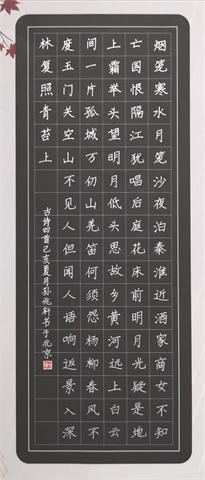 烟笼寒水月笼沙夜泊秦淮近酒家商女不知
亡国恨隔江犹唱后庭花床前明月光疑是地
上霜举头望明月低头思故乡黄河远上白云
间一片孤城万仞山羌笛何须怨杨柳春风不
度玉门关空山不见人但闻人语响返景入深
林复照青苔上
古诗四首己亥夏月孙兆轩书于北京